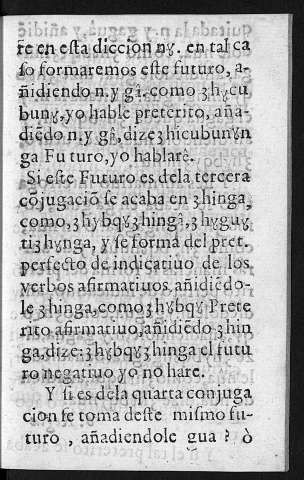 r̃e en esta diccion nɣ. en tal ca
so formaremos este futuro, a-
ñidiendo n. y gâ. como ʒhɣcu
bunɣ, yo hable preterito, aña-
diẽdo n. y gâ, dize ʒhicubunɣn
ga Futuro, yo hablarè.
Si este Futuro es dela tercera
cõjugaciõ se acaba en ʒhinga,
como, ʒhɣbqɣʒhingâ, ʒhɣgɣ
tiʒhɣnga, y se forma del pret.
perfecto de indicatiuo de los
verbos afirmatiuos, añidiẽdo-
le ʒhinga, como ʒhɣbqɣ Prete
rito afirmatiuo, añidiẽdo ʒhin
ga, dize: ʒhɣbqɣʒhinga el futu
ro negatiuo yo no hare.
Y si es dela quarta conjuga
cion se toma deste mismo fu-
turo, añadiendole gua? ò